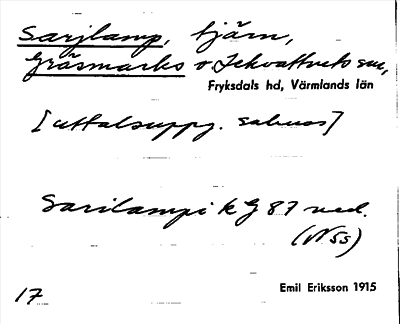 Sarjlamp, tjärn,
Gräsmarks o Lekvattnets snr,
Fryksdals hd, Värmlands län
[uttalsuppg. saknas]
Sarilampi k G 87 ned.
(NSs)
17 Emil Eriksson 1915